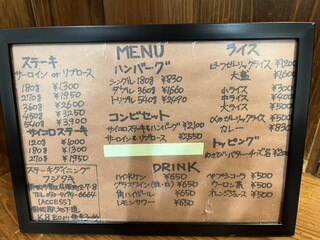 MENU
ステーキ
サーロイン or リブロース
180g ¥1300
270g ¥1950
360g ¥2600
450g ¥3250
540g ¥3900
サイコロステーキ
120g ¥1000
180g ¥1300
270g ¥1950
ステーキダイニング
フジタキ
[ACCESS]
ハンバーグ
シングル 180g ¥830
ダブル 360g ¥1660
トリプル 540g ¥2490
コンビセット
サイコロステーキ&ハンバーグ ¥2,100
サーロイン&リブロース ¥3550
DRINK
ハイネケン ¥650
グラスワイン(赤・白) ¥650
角ハイボール ¥650
レモンサワー ¥650
ライス
ビーフガーリックライス ¥1200
大盛 ¥1600
小ライス ¥300
中ライス ¥400
大ライス ¥500
ガーリックライス ¥500
カレー ¥830
トッピング
わさび・バター・チーズ 各¥200
ペプシコーラ ¥500
ウーロン茶 ¥500
オレンジジュース ¥500